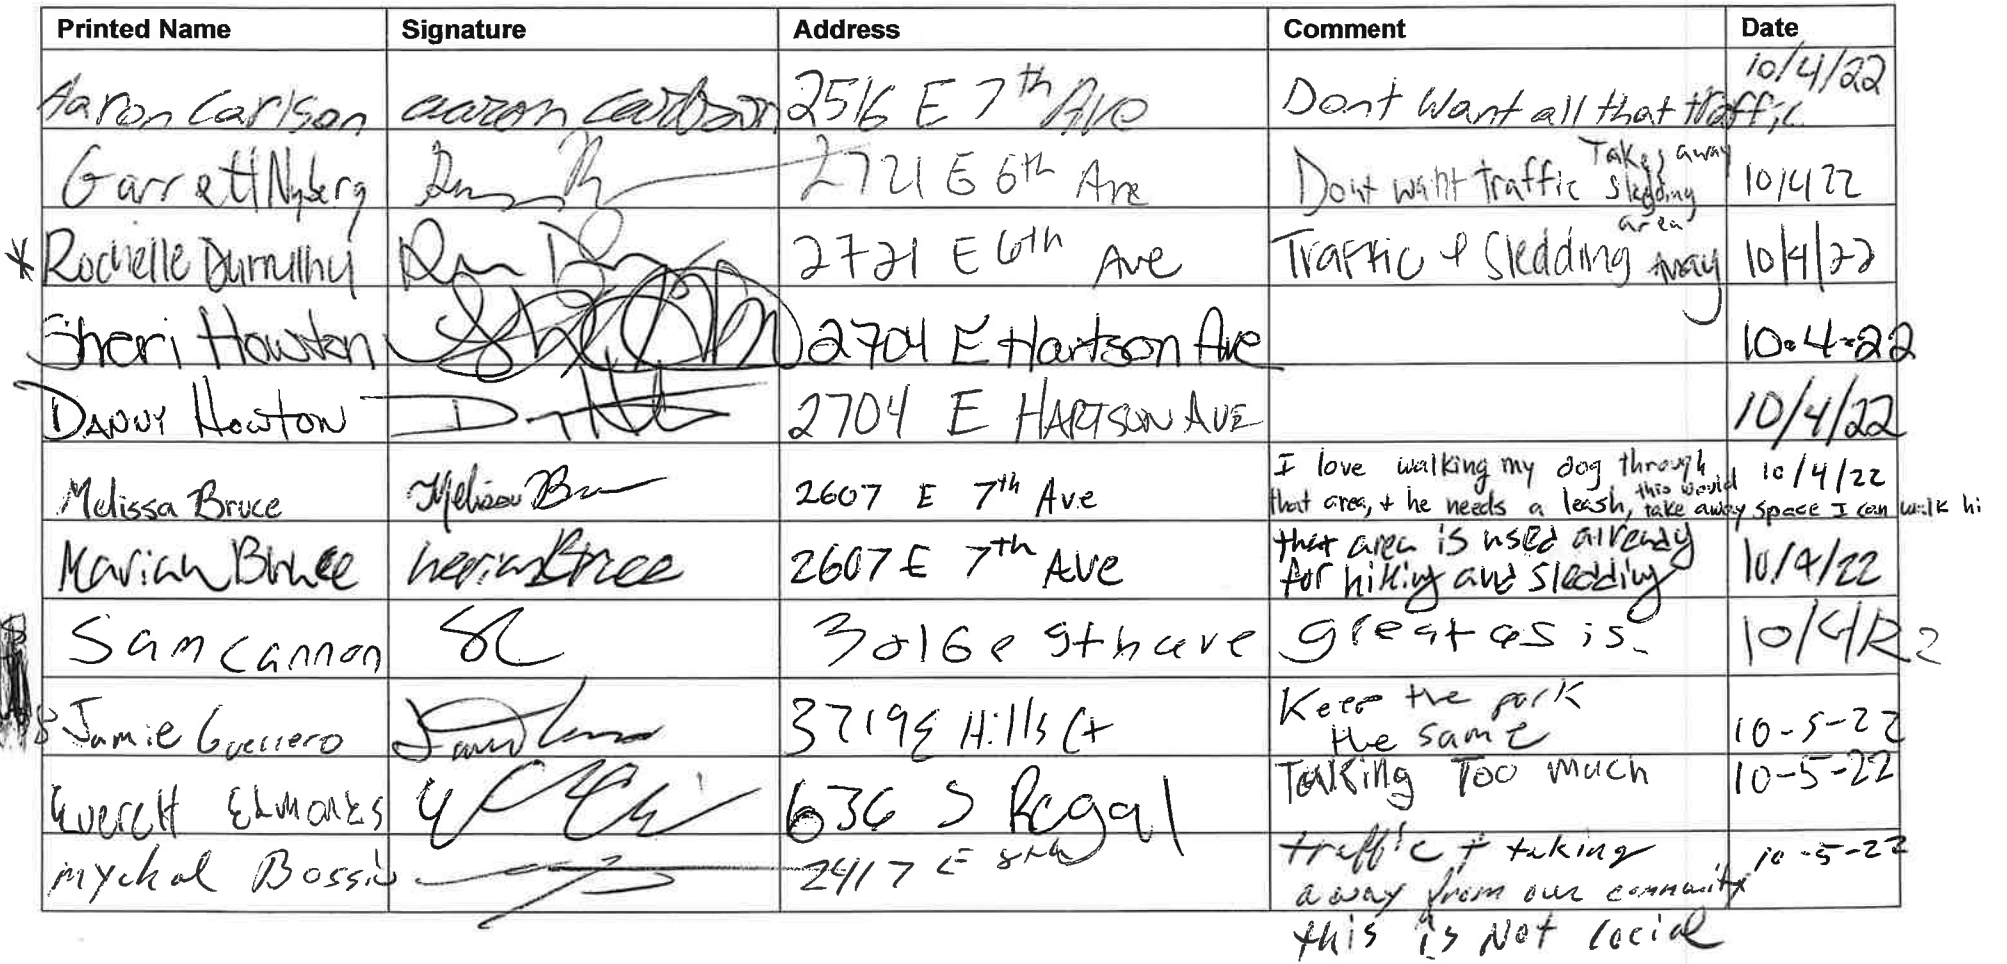 Printed Name Signature Address Comment Date
Aaron Carlson aaron carlson 2516 E 7th Ave Dont want all that traffic 10/4/22
Garrett Nyberg 2721 E 6th Ave Dont want traffic Takes away sledding area 10/4 22
* Rochelle 2721 E 6th Ave Traffic & Sledding away 10/4/22
Sheri Howton 2704 E Hartson Ave 10-4-22
DANNY HOWTON 2704 E HARTSON AVE 10/4/22
Melissa Bruce Melissa 2607 E 7th Ave I love walking my dog through 10/4/22
that area, + he needs a leash, this would take away space I can walk hi
Marian Bruce Marian Bruce 2607 E 7th Ave that area is used already
for hiking and sledding 10/4/22
Sam Cannon SC 3016 e 9th ave great as is. 10/4/22
Jamie Guerrero 3719 E Hills Ct Keep the park
the same 10-5-22
Everett Edmonds 636 S Regal Taking Too much 10-5-22
mychal Bossi 2417 E 8th traffic + taking 10-5-22
away from our community
this is Not